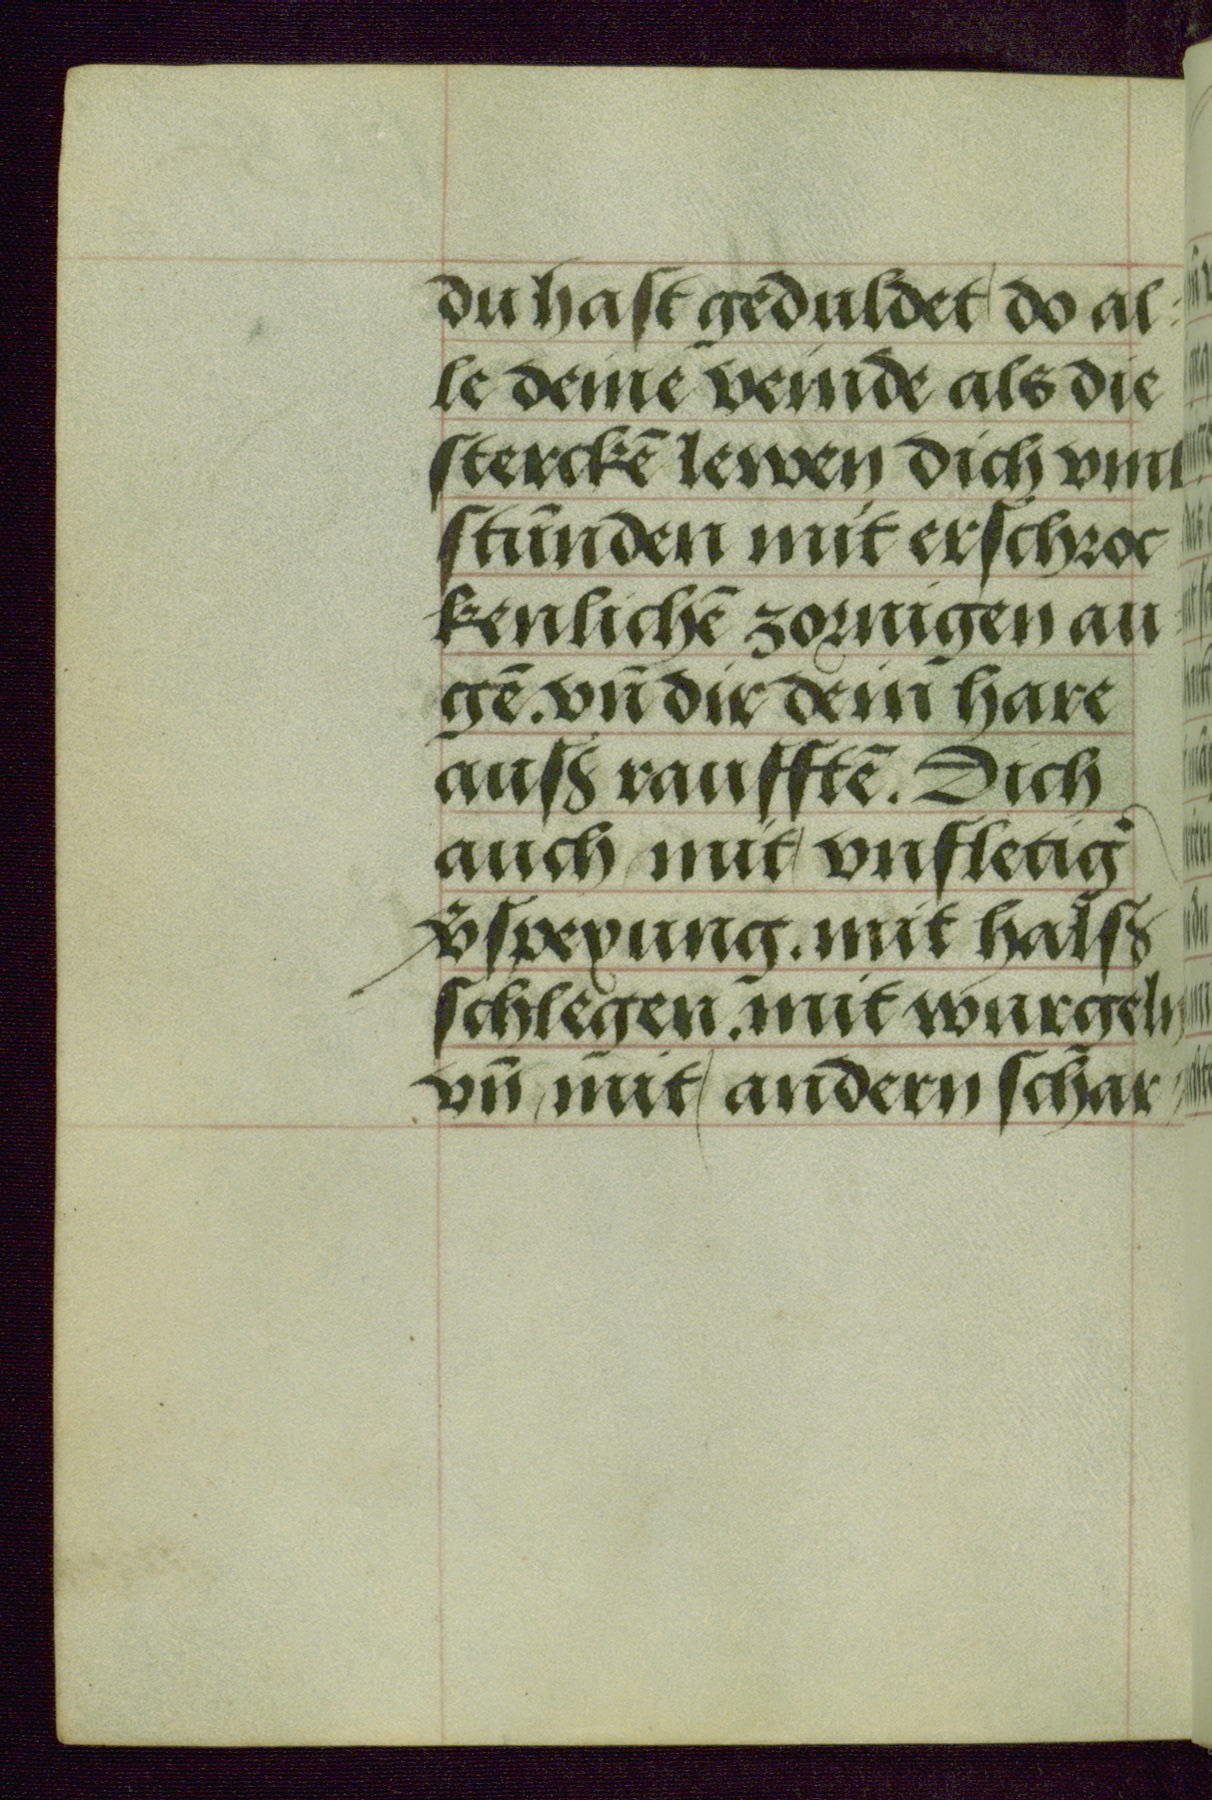 du hast geduldet do al:
le deine veinde als die
sterckē lewen dich vmb
stunden mit erschroc
kenlichē zornigen au
gē. vn̄ dir dein hare
auſß raufftē. Dich
auch mit vnfletig̉
v̉speyung. mit halſß
schlegen. mit wurgeln
vn̄ mit andern schar